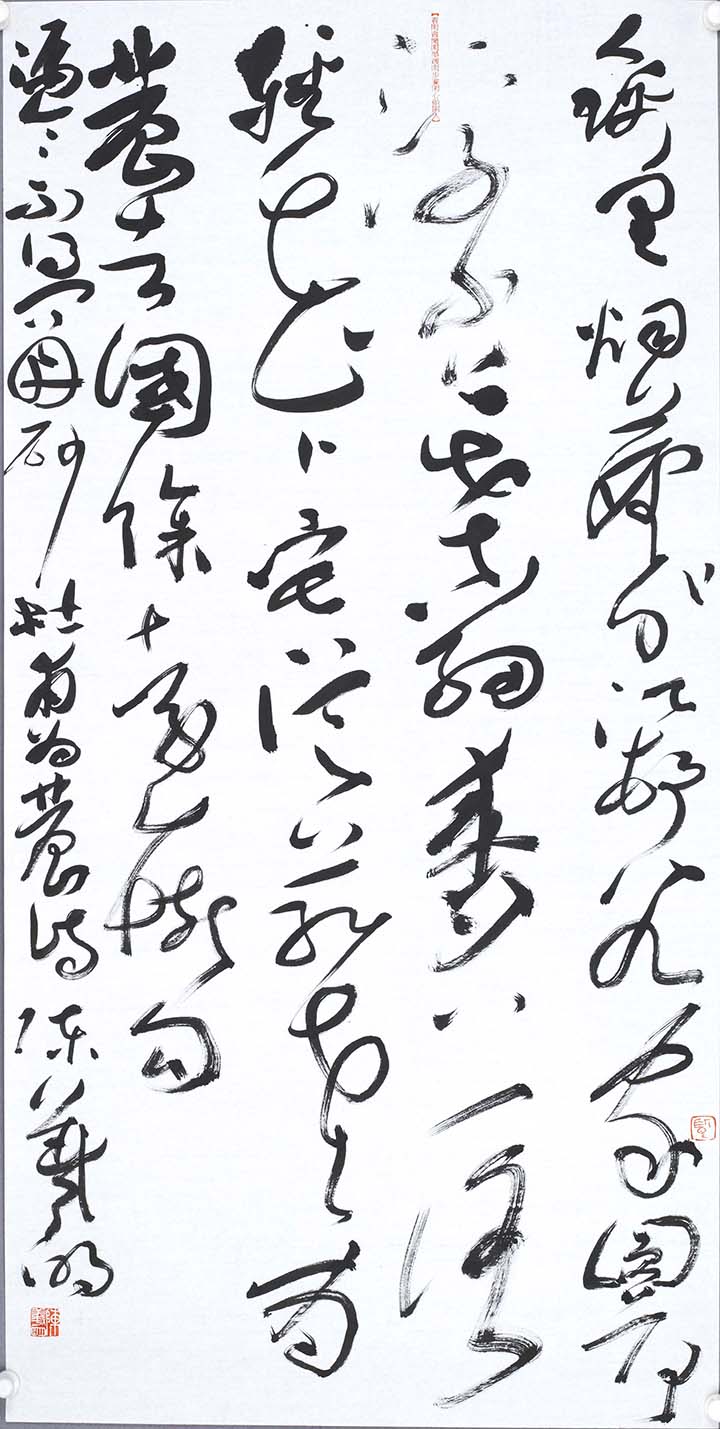 錦里烟塵外江村八九家圓荷
浮小葉細麥落
輕花卜宅從兹老為
農去國賒遠慚勾
漏令不得問丹砂 杜甫為農詩 陳羲明